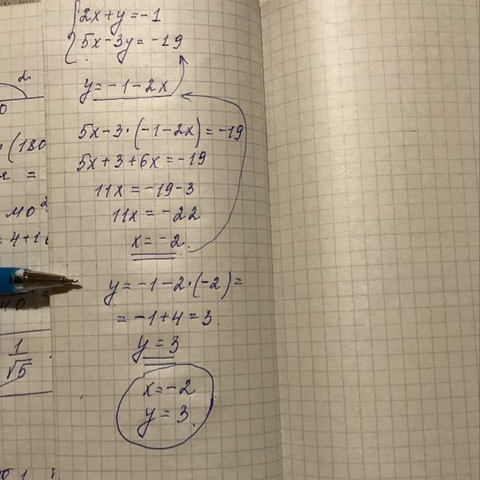 2x+y=-1
5x-3y=-19
y=-1-2x
5x-3·(-1-2x)=-19
5x+3+6x=-19
11x=-19-3
11x=-22
x=-2
y=-1-2·(-2)=
=-1+4=3
y=3
x=-2
y=3
2
(180
=
=4+1
1
√5